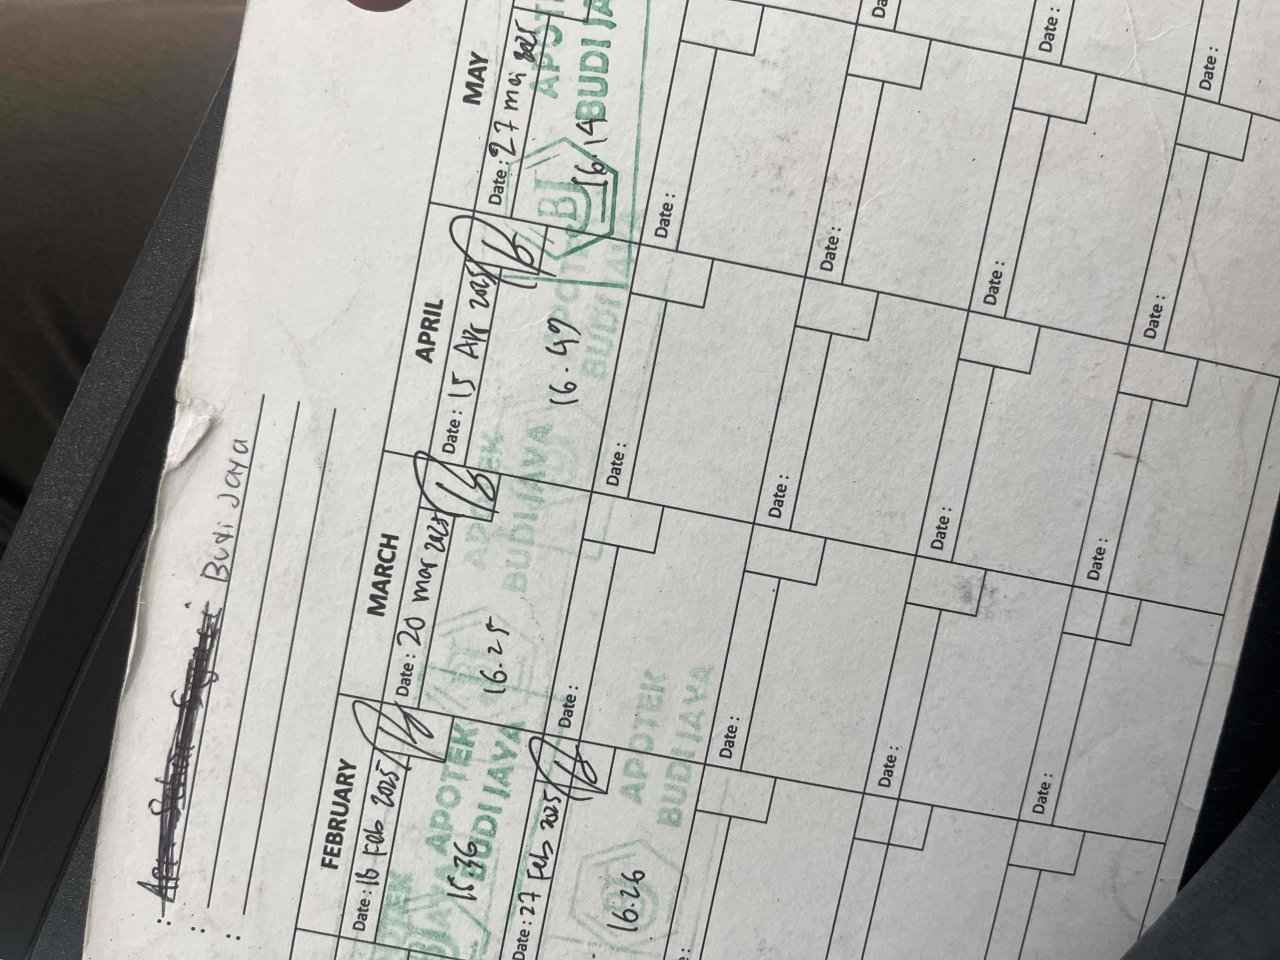 : Budi Jaya
:
:
FEBRUARY
MARCH
APRIL
MAY
Date : 18 Feb 2025
Date : 20 Mar 2025
Date : 15 Apr 2025
Date : 27 mei 2025
APOTEK
BUDI JAYA
15.36
APOTEK
BUDI JAYA
16.25
APOTEK
BUDI JAYA
16.49
APOTEK
BUDI JAYA
16.14
Date : 27 Feb 2025
Date :
Date :
Date :
APOTEK
BUDI JAYA
16.26
Date :
Date :
Date :
Date :
Date :
Date :
Date :
Date :
Date :
Date :
Date :